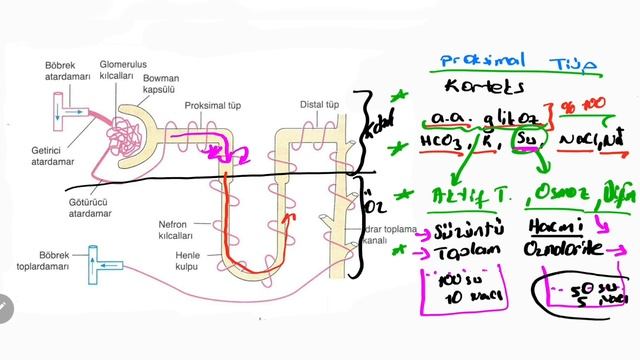 Böbrek
atardamarı
Glomerulus
kılcalları
Bowman
kapsülü
Proksimal tüp
Distal tüp
Getirici
atardamar
Götürücü
atardamar
Nefron
kılcalları
Henle
kulpu
idrar toplama
kanalı
Böbrek
toplardamarı
Öz
Proksimal Tüp
Korteks
a.a. glikoz % 100
HCO3, K, Su, NaCl, Na+
Aktif T. , Osmoz,
→ Süzüntü Hacmi
→ Toplam
100 su
10 NaCl
50 su
5 NaCl